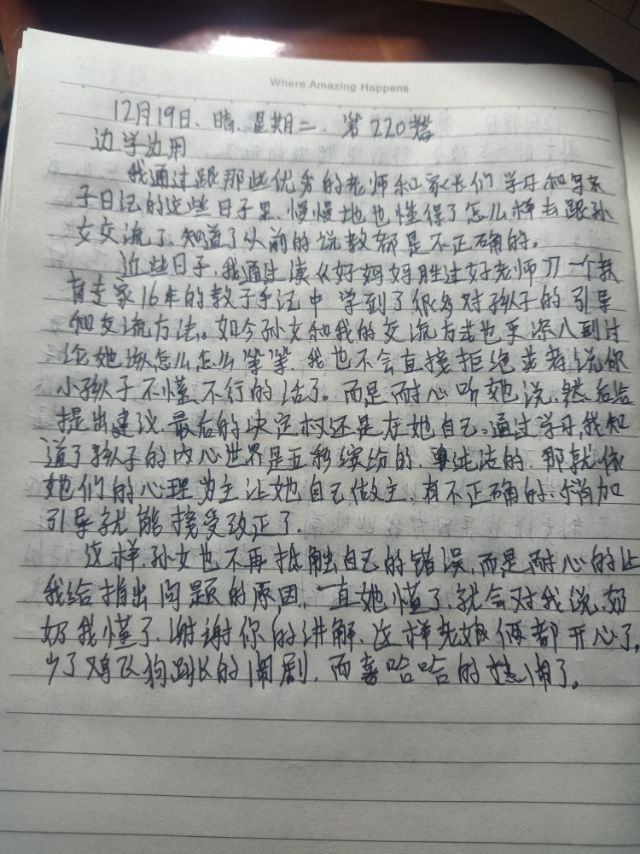 Where Amazing Happens
12月19日、晴、星期二、第220篇
边学边用
我通过跟那些优秀的老师和家长们学习和写亲
子日记的这些日子里,慢慢地也懂得了怎么样去跟孙
女交流了,知道了从前的说教都是不正确的。
近些日子,我通过读《好妈妈胜过好老师》一个教
育专家16年的教子手记中 学到了很多对孩子的引导
和交流方法。如今孙女和我的交流方式也更深入到讨
论她该怎么怎么 等等,我也不会直接拒绝或者说你
小孩子不懂,不行的话了。而是耐心听她说,然后给
提出建议,最后的决定权还是在她自己。通过学习,我知
道了孩子的内心世界是五彩缤纷的,单纯洁的,那就依
她们的心理为主让她自己做主,有不正确的,稍加
引导就能接受改正了。
这样,孙女也不再抵触自己的错误,而是耐心的让
我给指出问题的原因,一直她懂了,就会对我说,奶
奶我懂了,谢谢你的讲解,这样 俩都开心了,
少了鸡飞狗跳的闹剧,而喜哈哈的热闹了。